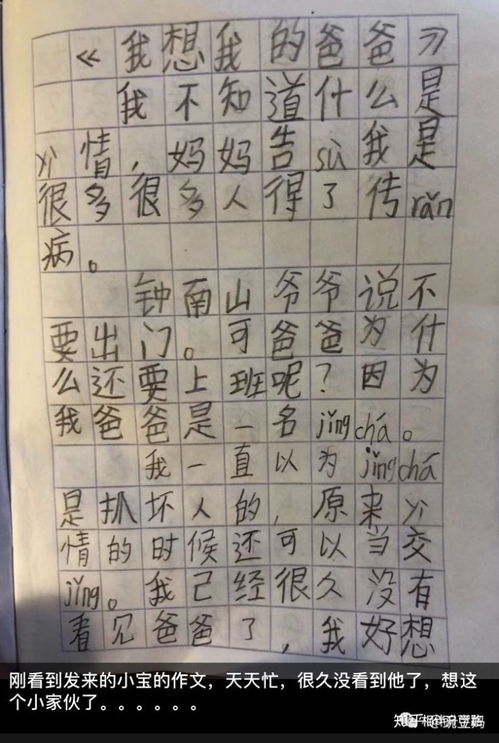 《我想我的爸爸》
我不知道什么是
yì情，妈妈告sù我是
很多很多人得了传rǎn
病。
钟南山爷爷说不
要出门。可爸爸为什
么还要上班呢？因为
我爸爸是一名jǐngchá。
我一直以为jǐngchá
是抓坏人的，原来yì
情的时候还可以当交
jǐng。我已经很久没有
看见爸爸了，我好想
刚看到发来的小宝的作文，天天忙，很久没看到他了，想这
个小家伙了。。。。。。
知乎